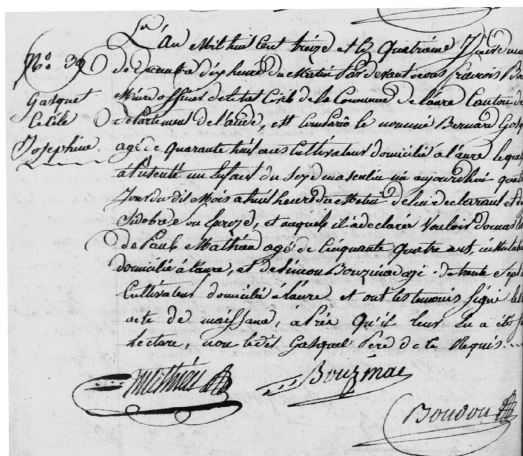 L'an Mil huit Cent treize et le Quatrième Jour du mois
de Decembre dix heures du Matin Par devant nous francois
N.o 39
Maire officier de l'etat Civil de la Commune de laure Canton de
Gasquet
departement de l'aude, est Comparu le nommé Bernard Gasquet
Cecile
agé de quarante huit ans Cultivateur domicilié a laure lequel
Josephine
a présenté un Enfant du Sexe masculin né aujourdhui quatre
Jour du dit Mois a huit heures du Matin de lui declarant et de
Epouse, et auquel il a déclaré Vouloir donner
de Paul Mathieu agé de Cinquante Quatre ans, 
domicilié a laure, et de Simon Bouzinac agé de trente Sept
Cultivateur domicilié a laure et ont les temoins signé le
acte de naissance, après Qu'il leur en a été
Lecture, non ledit Gasquet Père de ce Requis.
Mathieu
Bouzinac
Boudou